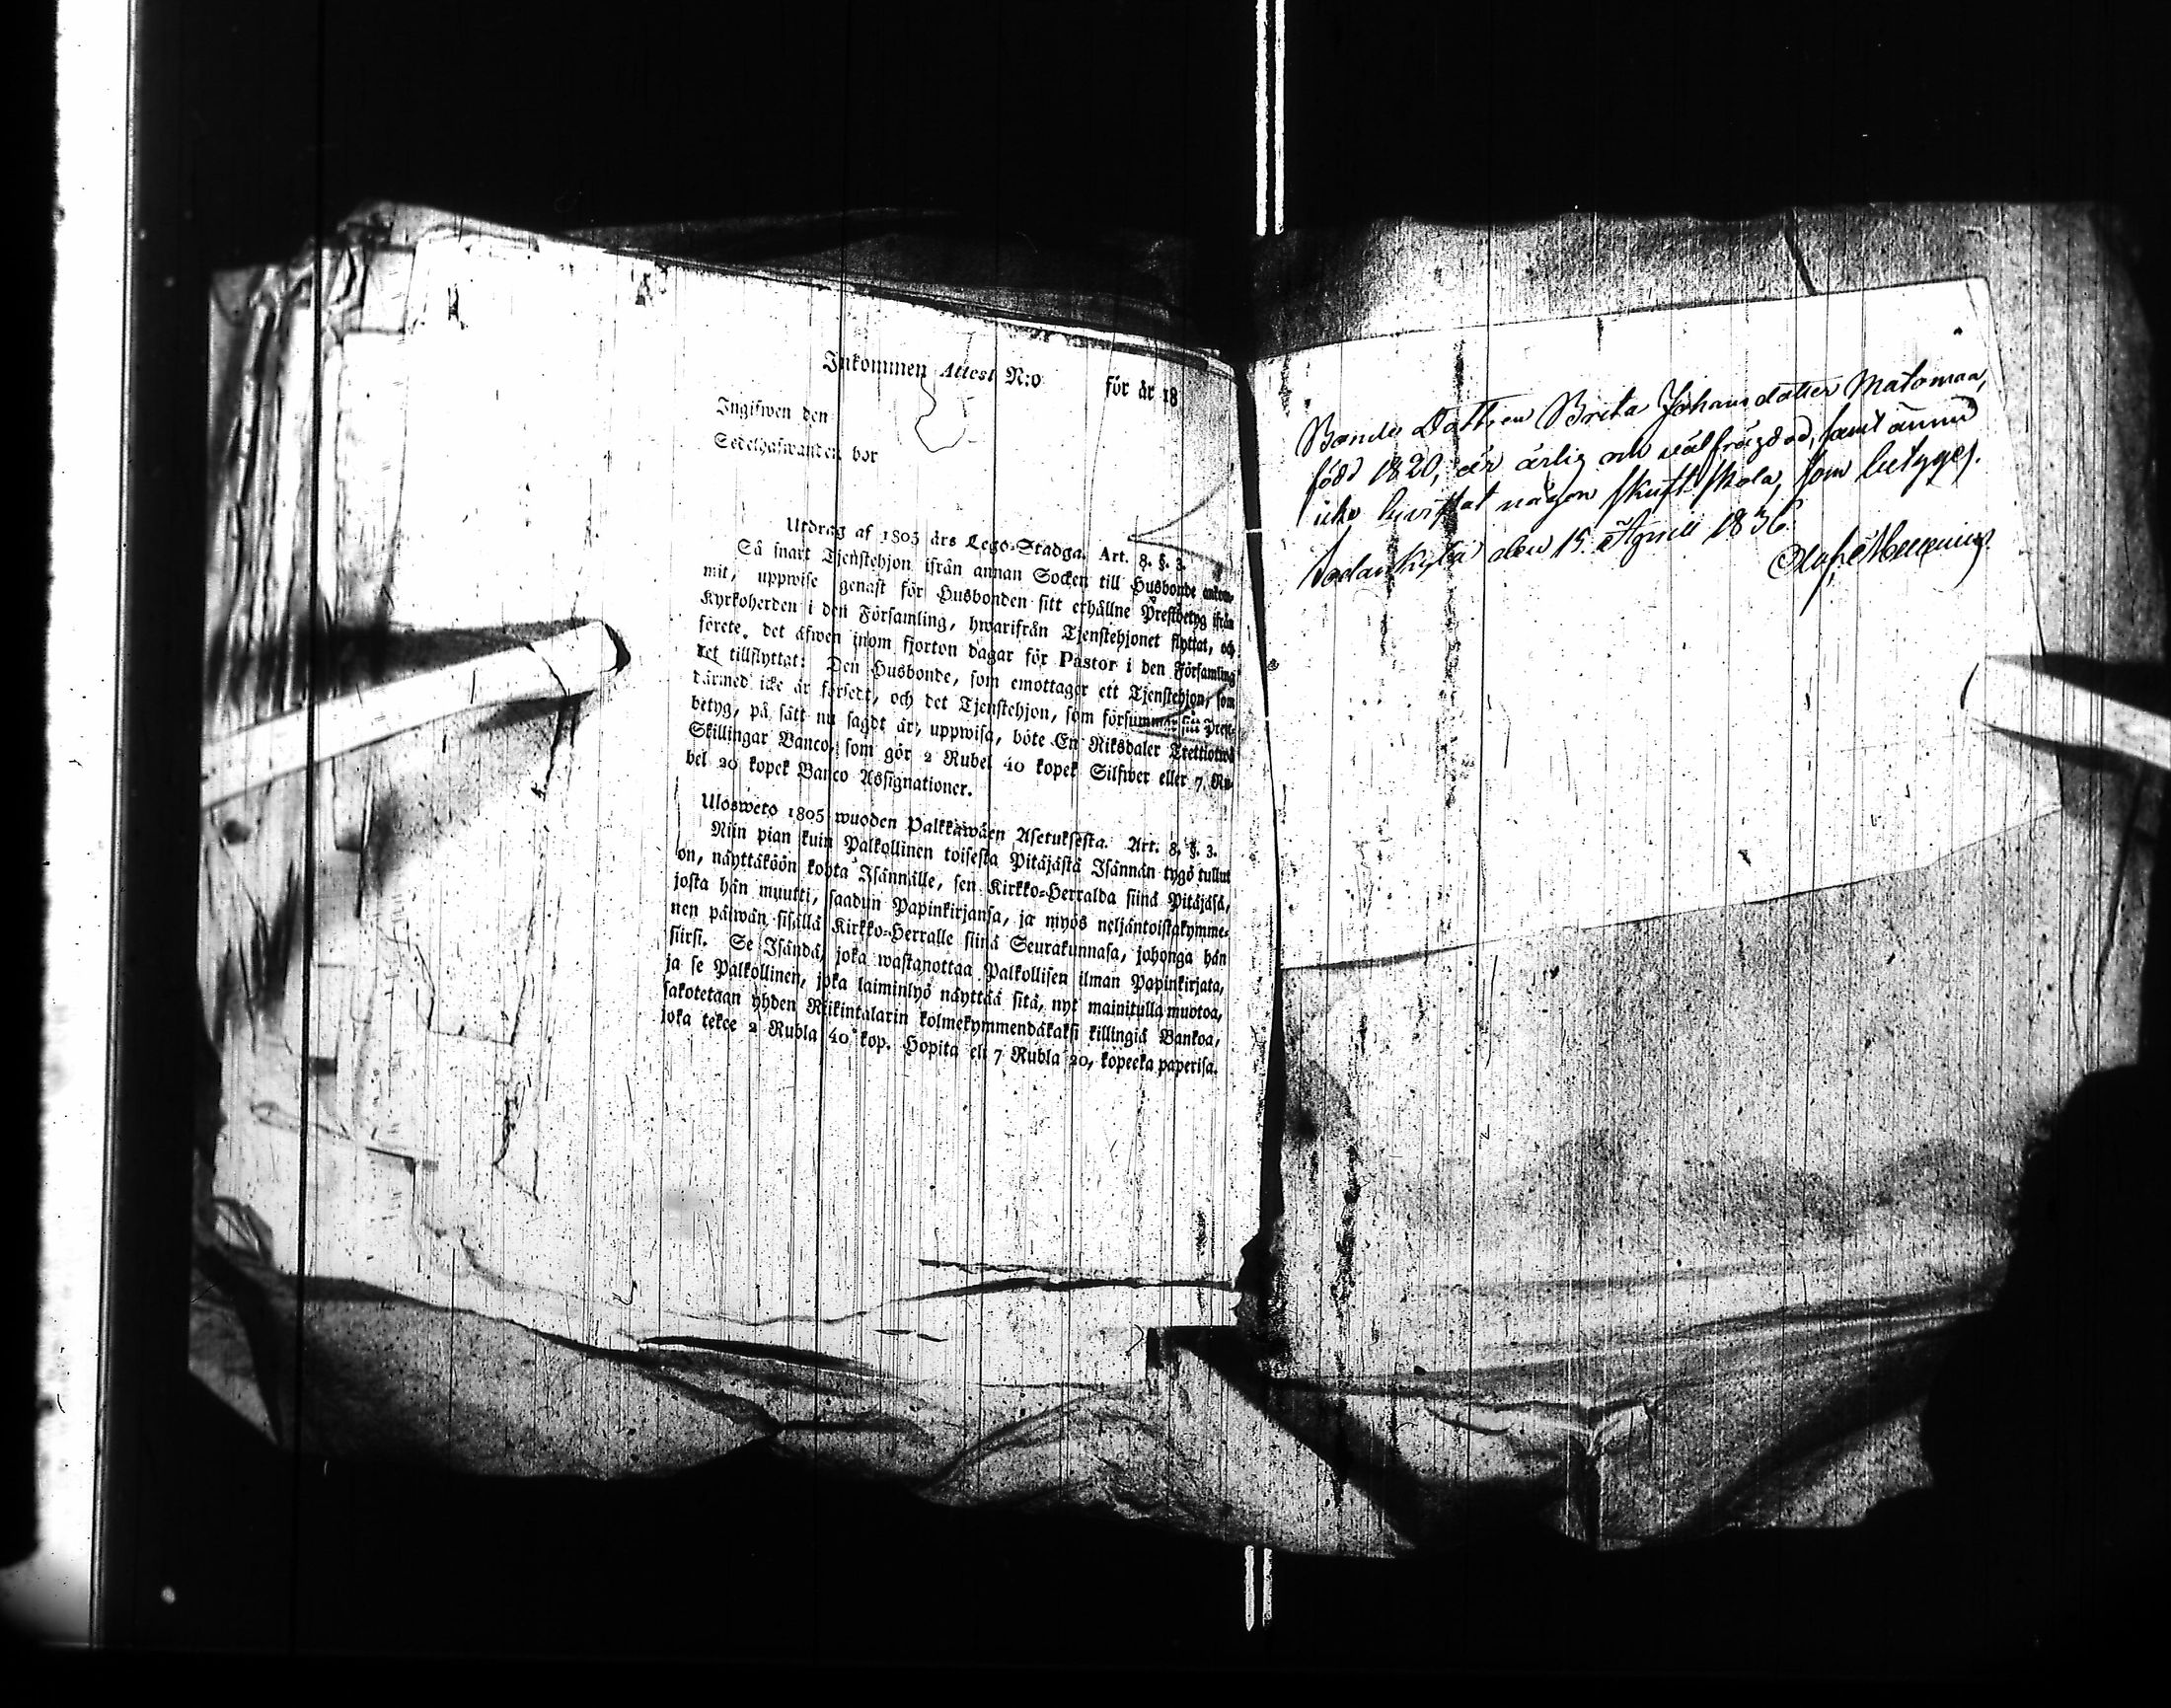 Inkommen Attest N:o för år 18
Ingifwen den
Sedelhafwanden bor
Utdrag af 1805 års Lego-Stadga. Art. 8. §. 3.
Så snart Tjenstehjon ifrån annan Socken till Husbonde ankom-
mit, uppwise genast för Husbonden sitt erhållne Prestbetyg ifrån
Kyrkoherden i den Församling, hwarifrån Tjenstehjonet flyttat, och
förete det äfwen inom fjorton dagar för Pastor i den Församling
det tillflyttat: Den Husbonde, som emottager ett Tjenstehjon, som
därmed icke är försedt, och det Tjenstehjon, som försummar sitt Prest-
betyg, på sätt nu sagdt är, uppwisa, böte En Riksdaler Trettiotwå
Skillingar Banco, som gör 2 Rubel 40 kopek Silfwer eller 7 Ru-
bel 20 kopek Banco Assignationer.
Ulosweto 1805 wuoden Palkkawäen Asetuksesta. Art. 8. §. 3.
Niin pian kuin Palkollinen toisesta Pitäjästä Isännän tygö tullut
on, näyttäköön kohta Isännälle, sen Kirkko-Herralda siinä Pitäjäsä,
josta hän muutti, saadun Papinkirjansa, ja myös neljäntoistakymme-
nen päiwän sisällä Kirkko-Herralle siinä Seurakunnasa, johonga hän
siirsi. Se Isändä, joka wastanottaa Palkollisen ilman Papinkirjata,
ja se Palkollinen, joka laiminlyö näyttää sitä, nyt mainitulla muotoa,
sakotetaan yhden Riikintalarin kolmekymmendäkaksi killingiä Bankoa,
joka tekee 2 Rubla 40 kop. Hopita eli 7 Rubla 20, kopeeka paperisa.
Bonde Dottren Brita Johansdotter Matomaa,
född 1820, är ärlig och välfrägdad, samt ännu
icke bevistat någon skriftskola, som betyges.
Sodankylä den 15 April 1836.